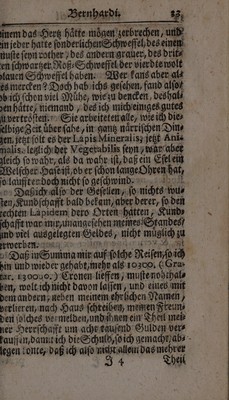 Bernhardi. 23
inem das Hertz hätte mögen zerbrechen, und
in jeder hatte sonderlichen Schweffel, des einen
muste seyn rother, des andern grauer, des drit-
en schwartzer Roß-Schweffel, der vierdte wolt
blauen Schweffel haben. Wer kans aber al-
es mercken? Doch hab ichs gesehen, fand also,
ob ich schon viel Mühe, wie zu dencken, deshal-
en hätte, niemand, des ich mich einiges gutes
zu vertrösten. Sie arbeiteten alle, wie ich die-
selbige Zeit über sahe, in gantz närrischen Din-
gen, jetzt solt es der Lapis Mineralis; jetzt Ani-
malis, letzlich der Vegetabilis seyn, war aber
gleich so wahr, als da wahr ist, daß ein Esel ein
Welscher Hase ist, ob er schon lange Ohren hat,
so laufft er doch nicht so geschwind.
Daß ich also der Gesellen, so nichts wu-
sten, Kundschafft bald bekam, aber derer, so den
rechten Lapidem dero Orten hätten, Kund-
schafft war mir, unangesehen meines Standes/
und viel ausgelegten Geldes, nicht müglich zu
erworben.
Daß in Summa mir auf solche Reisen, so ich
hin und wieder gehabt, mehr als 10300. (Gru-
ar. 13000.) Cronen lieffen, muste wohl hal-
ten, wolt ich nicht davon lassen, und eines mit
dem andern, neben meinem ehrlichen Namen,
verlieren, nach Hauß schreiben, meinen Freun-
den solches vermelden, und ihnen ein Theil mei-
ner Herrschafft um acht tausend Gulden ver-
kauffen, damit ich die Schuld, so ich gemacht, ab-
legen konte, daß ich also nicht allein das mehrer
J 4 Theil